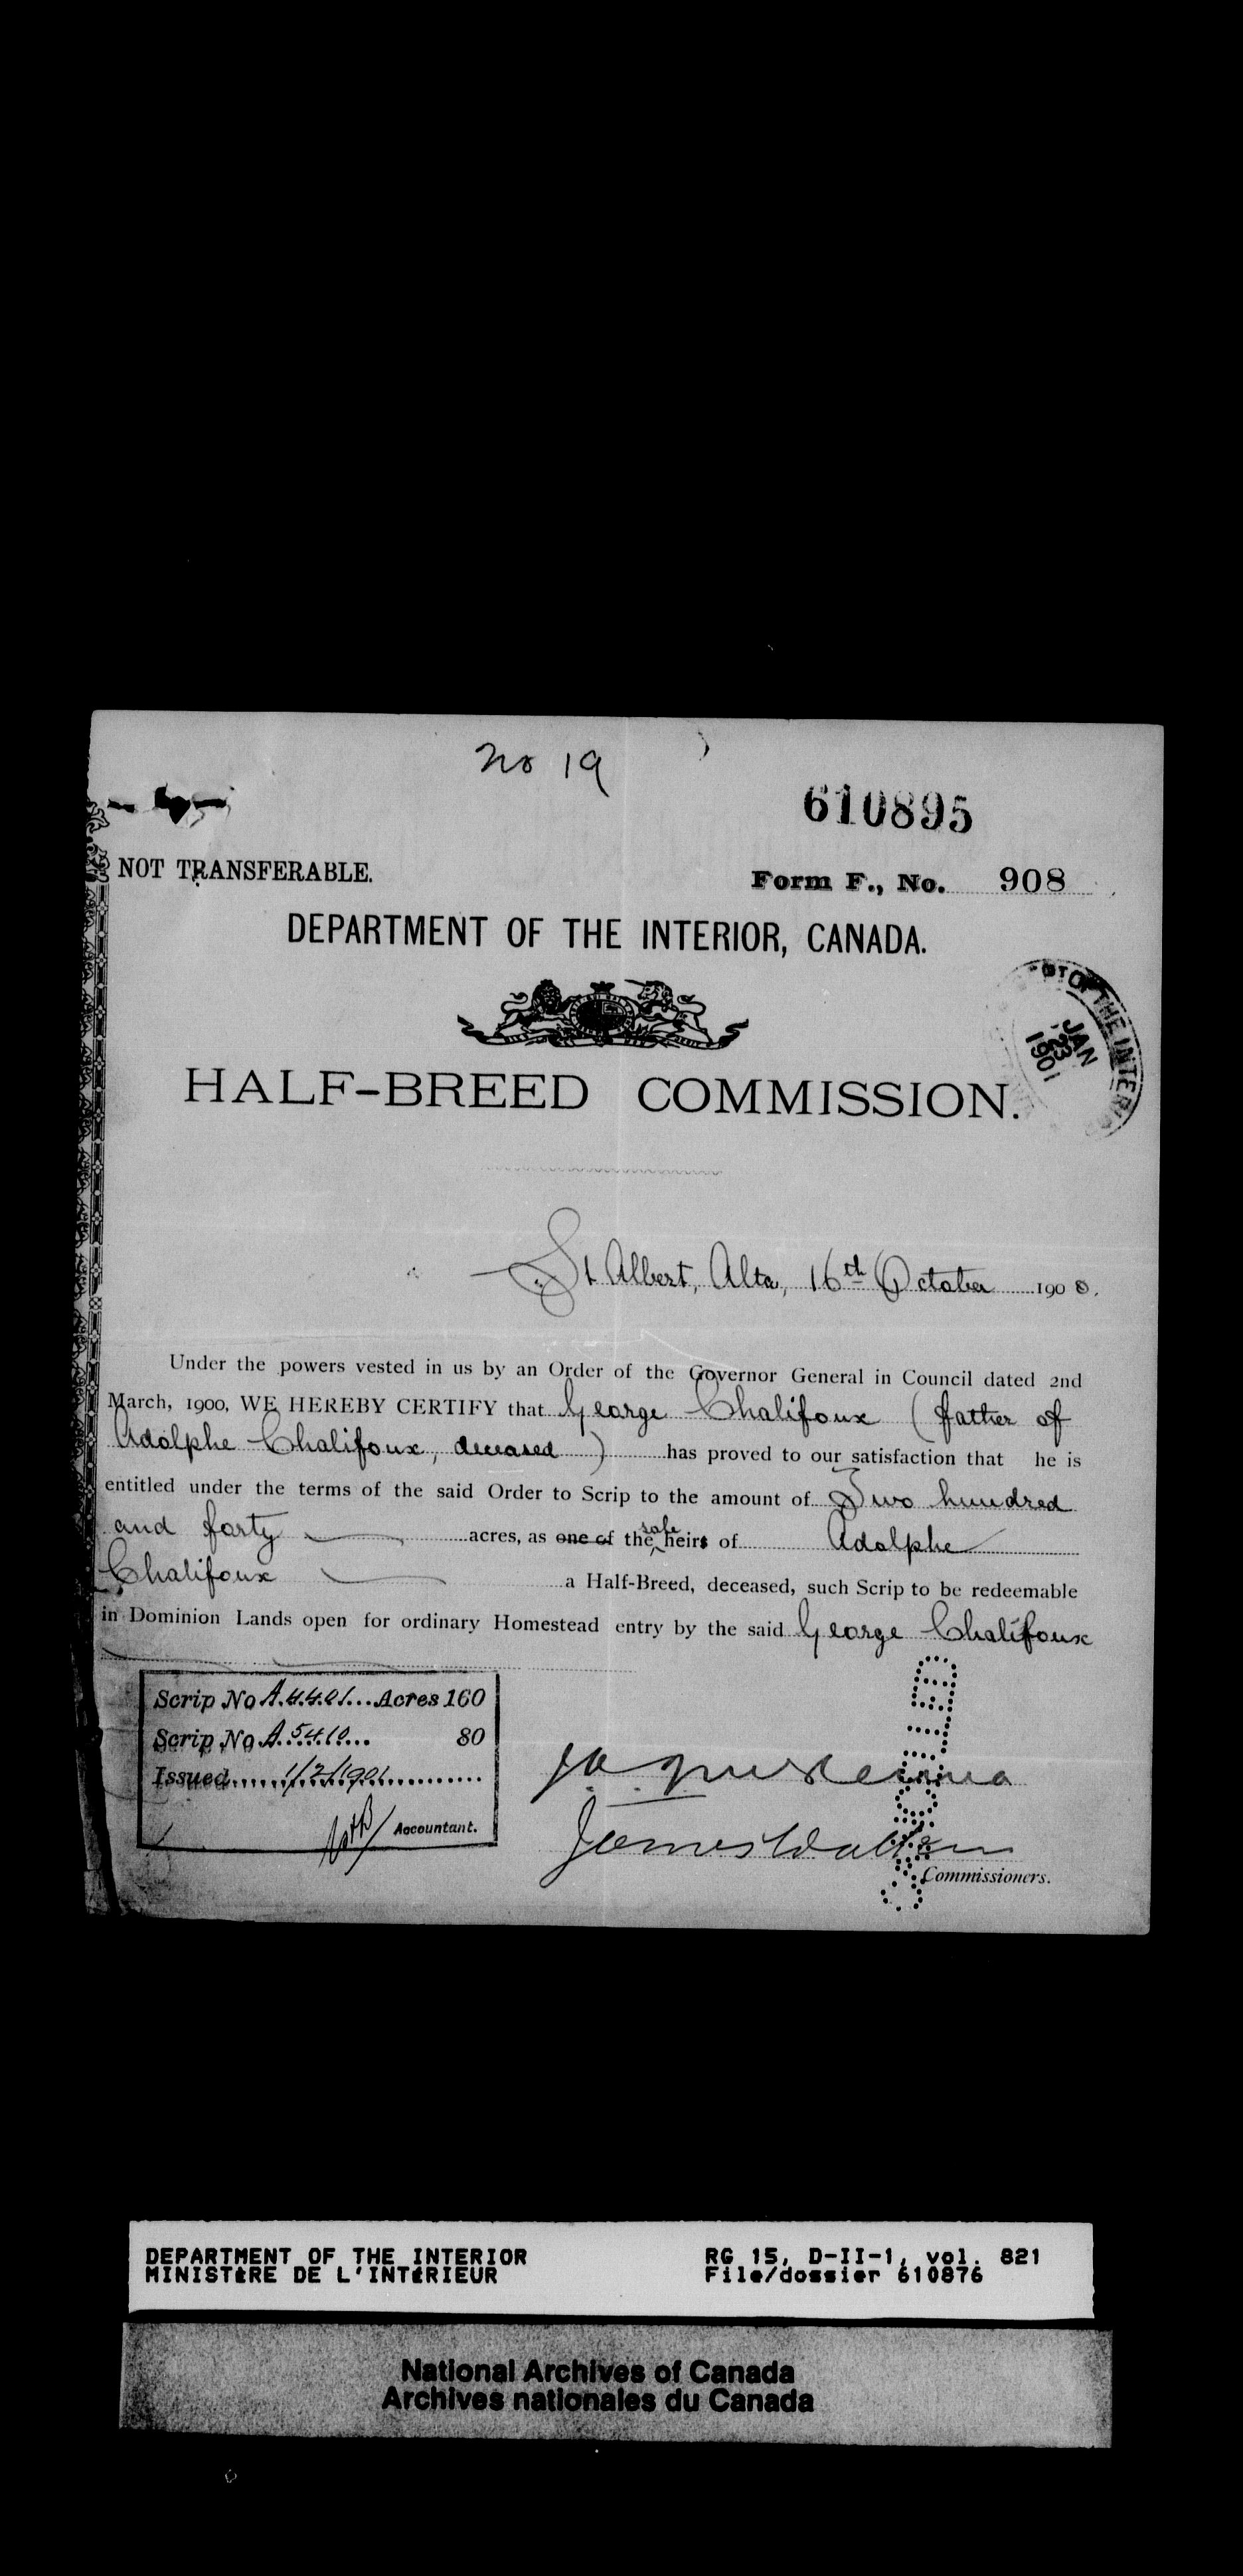 No 19
610895
NOT TRANSFERABLE.
Form F., No. 908
DEPARTMENT OF THE INTERIOR, CANADA.
HALF-BREED COMMISSION.
OF THE INTERIOR
JAN
23
1901
St Albert, Alta, 16th October 1900.
Under the powers vested in us by an Order of the Governor General in Council dated 2nd
March, 1900, WE HEREBY CERTIFY that George Chalifoux (father of
Adolphe Chalifoux, deceased) has proved to our satisfaction that he is
entitled under the terms of the said Order to Scrip to the amount of Two hundred
and forty acres, as one of the sole heirs of Adolphe
Chalifoux a Half-Breed, deceased, such Scrip to be redeemable
in Dominion Lands open for ordinary Homestead entry by the said George Chalifoux
Scrip No A.4401... Acres 160
Scrip No A.5410... 80
Issued 1/2/1901
Accountant.
James Walker
Commissioners.
DEPARTMENT OF THE INTERIOR
MINISTÈRE DE L'INTÉRIEUR
RG 15, D-II-1, vol. 821
File/dossier 610876
National Archives of Canada
Archives nationales du Canada